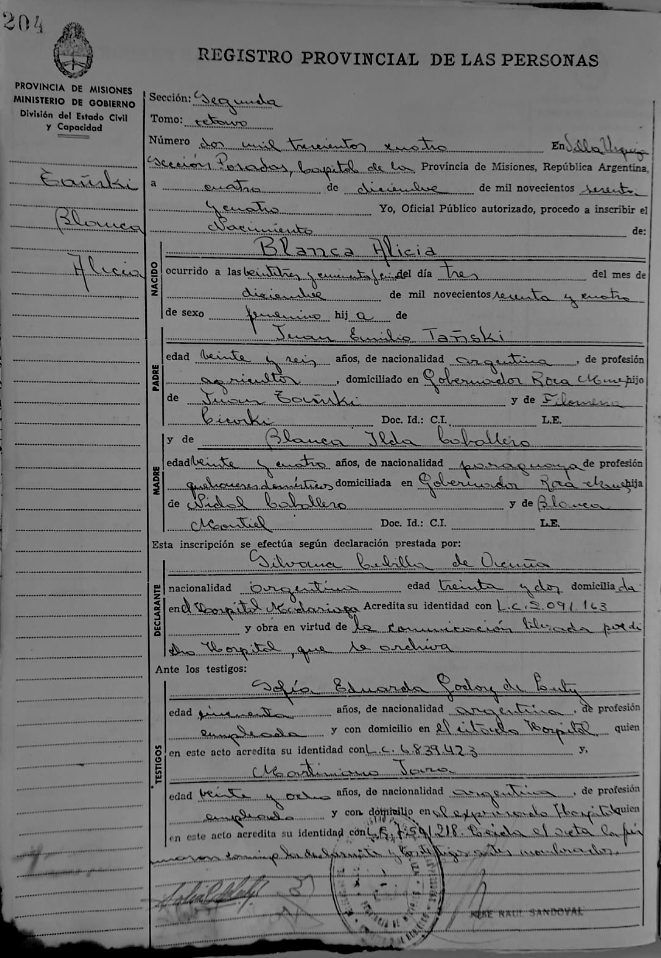 204
REGISTRO PROVINCIAL DE LAS PERSONAS
PROVINCIA DE MISIONES
MINISTERIO DE GOBIERNO
División del Estado Civil
y Capacidad
Tañski
Blanca
Alicia
Sección: Segunda
Tomo: octavo
Número dos mil trescientos cuatro En Villa Urquiza
Sección Posadas, Capital de la Provincia de Misiones, República Argentina,
a cuatro de diciembre de mil novecientos sesenta
y cuatro Yo, Oficial Público autorizado, procedo a inscribir el
Nacimiento de:
NACIDO
Blanca Alicia
ocurrido a las veintitres y cincuenta del día tres del mes de
diciembre de mil novecientos sesenta y cuatro
de sexo femenino hij a de
PADRE
Juan Emilio Tañski
edad veinte y seis años, de nacionalidad argentina, de profesión
agricultor, domiciliado en Gobernador Roca hijo
de Juan Tañski y de Filomena
Doc. Id.: C.I. L.E.
MADRE
y de Blanca Ilda Caballero
edad veinte y cuatro años, de nacionalidad paraguaya de profesión
quehaceres domésticos domiciliada en Gobernador Roca hija
de Vidal Caballero y de Blanca
Montiel Doc. Id.: C.I. L.E.
Esta inscripción se efectúa según declaración prestada por:
DECLARANTE
Silvana de Acuña
nacionalidad argentina edad treinta y dos domicilia da
en el Hospital Madariaga Acredita su identidad con L.C. 5.091.163
y obra en virtud de la comunicación librada por di
cho Hospital, que se archiva
Ante los testigos:
TESTIGOS
Sofía Eduarda Godoy de
edad cincuenta años, de nacionalidad argentina, de profesión
empleada y con domicilio en el citado Hospital quien
en este acto acredita su identidad con L.C. 6.839.423 y,
Martimiano Jara
edad veinte y ocho años, de nacionalidad argentina, de profesión
empleado y con domicilio en el expresado Hospital quien
en este acto acredita su identidad con Leída el acta la fir
maron conmigo la declarante y los testigos antes nombrados.
JOSE RAUL SANDOVAL